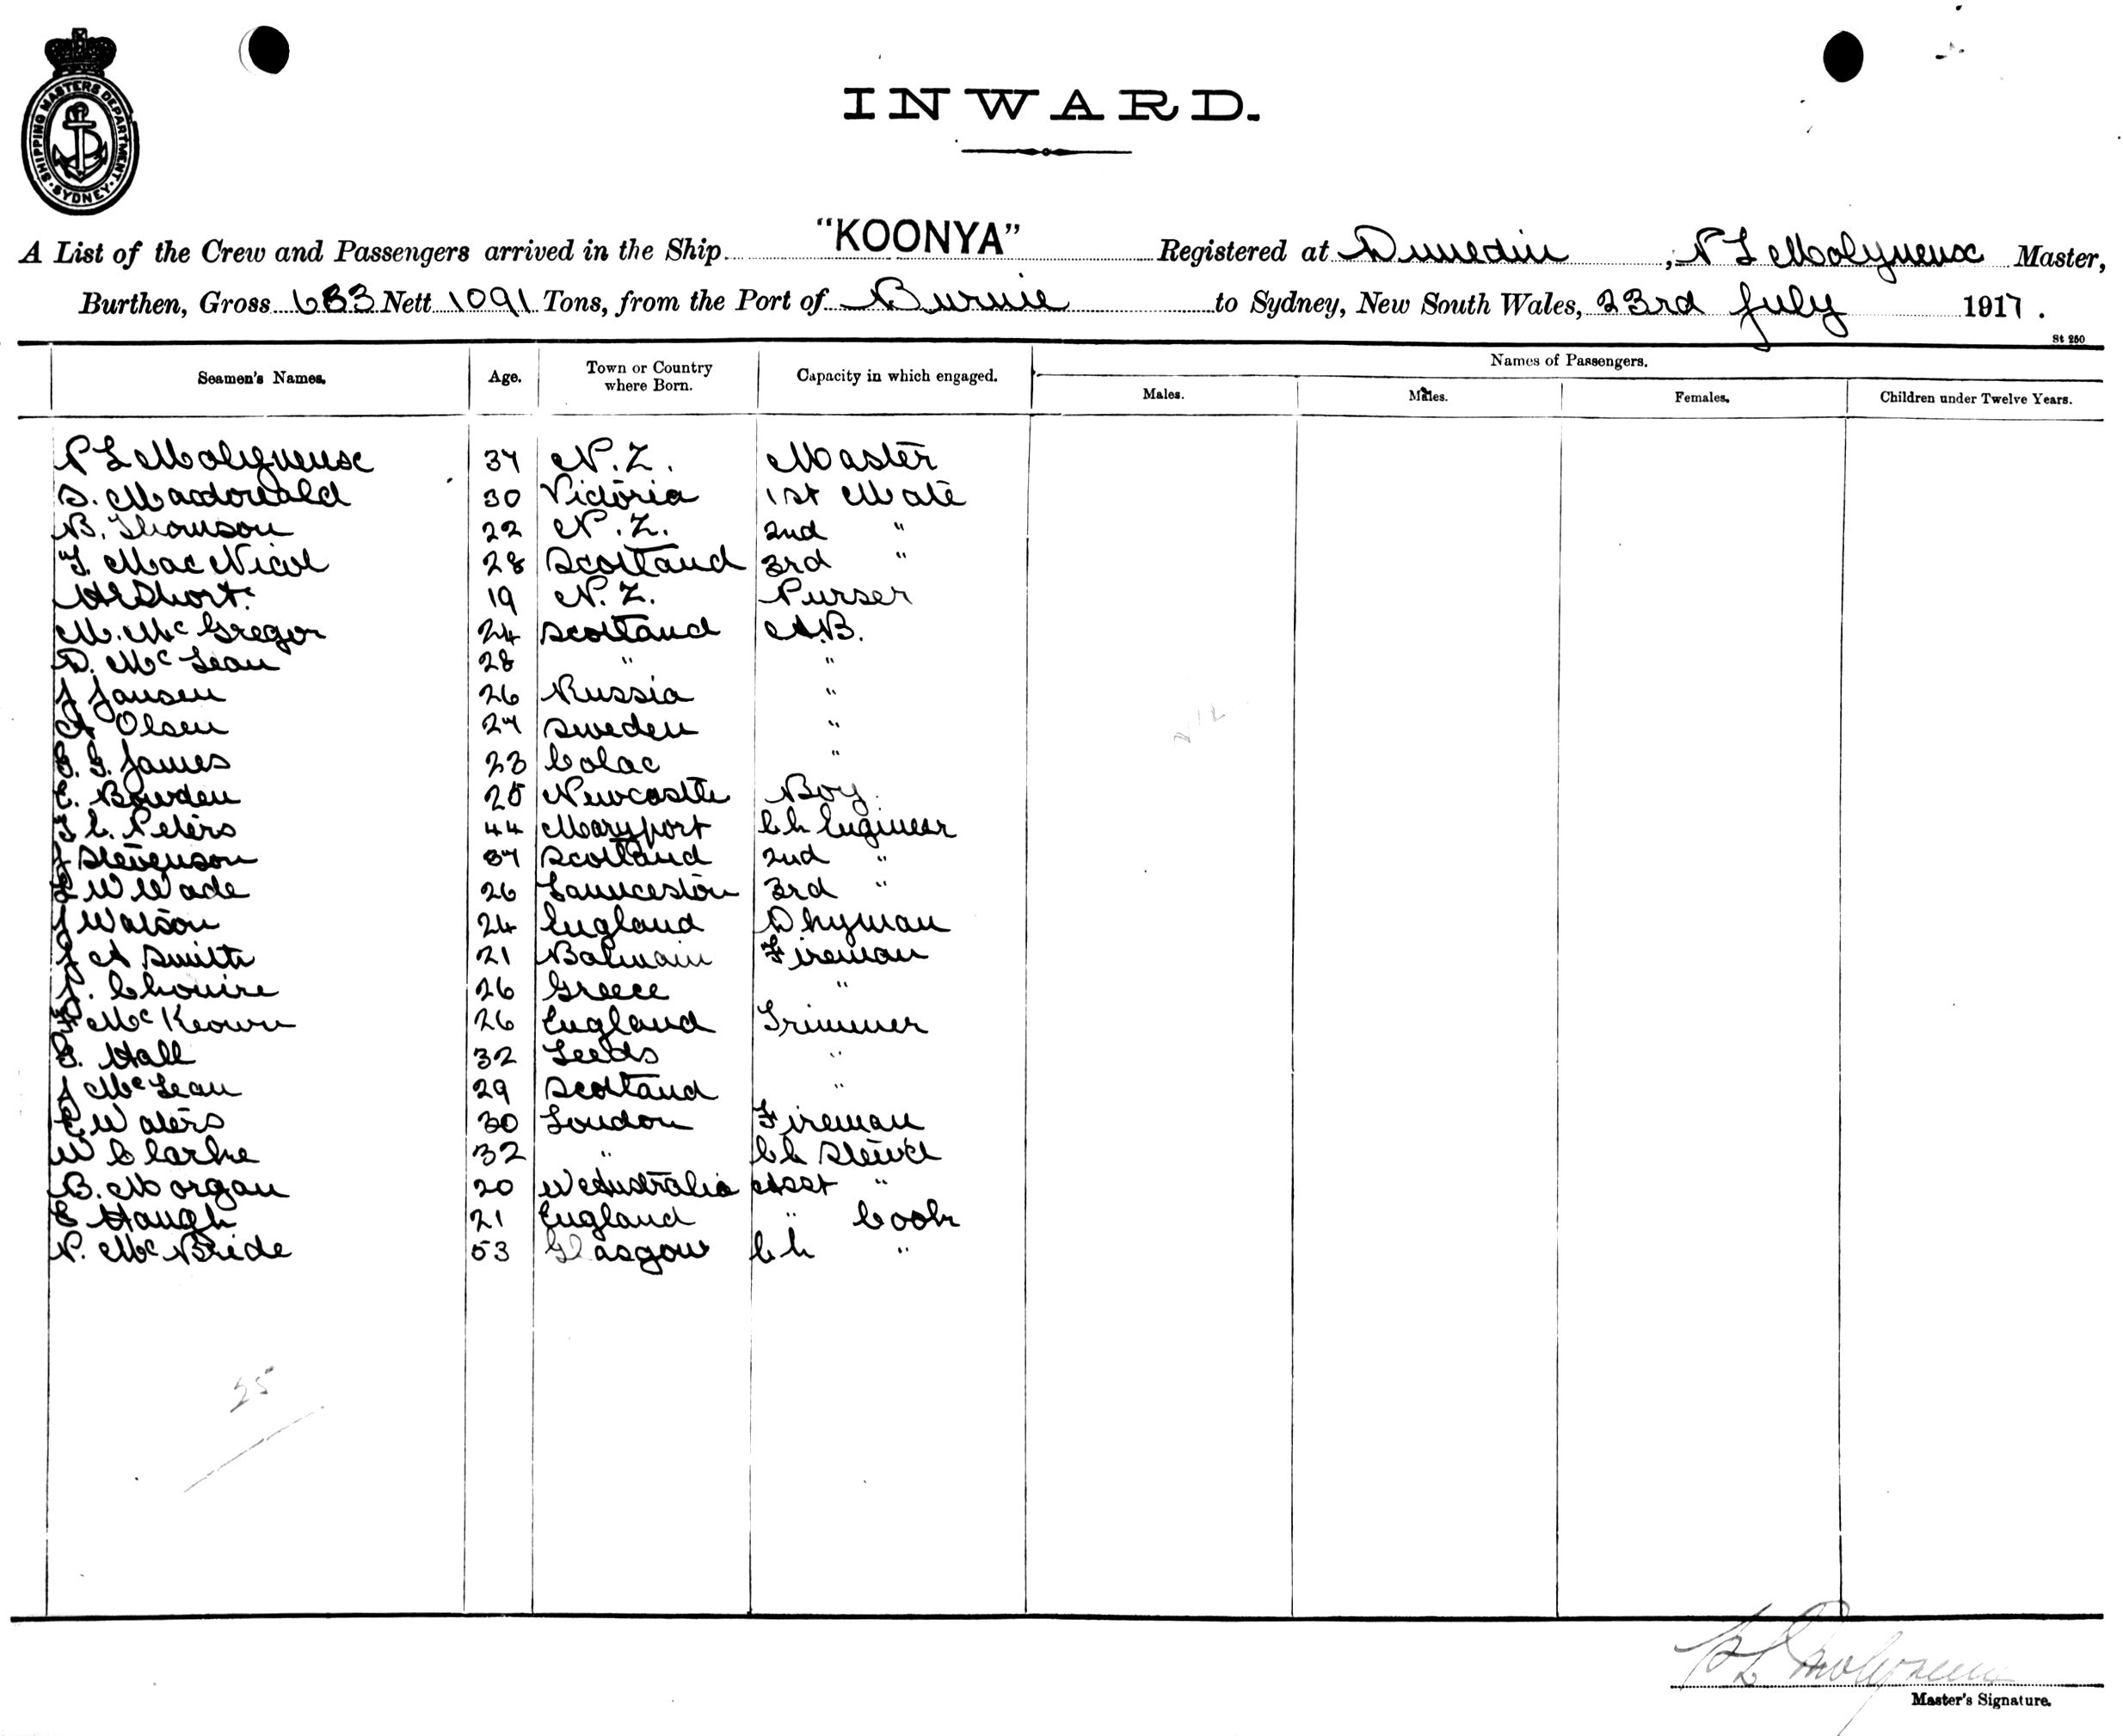 SHIPPING MASTERS DEPARTMENT. SYDNEY.
INWARD.
A List of the Crew and Passengers arrived in the Ship "KOONYA" Registered at Dunedin, P L Molyneux Master,
Burthen, Gross 663 Nett 1091 Tons, from the Port of Burnie to Sydney, New South Wales, 23rd July 1917.
St 250
Seamen's Names. Age. Town or Country where Born. Capacity in which engaged. Names of Passengers.
Males. Males. Females. Children under Twelve Years.
P L Molyneux 37 N.Z. Master
D. Macdonald 30 Victoria 1st Mate
B. Thomson 22 N.Z. 2nd "
T. MacNicol 28 Scotland 3rd "
Short. 19 N.Z. Purser
M. McGregor 24 Scotland A.B.
D. McLean 28 " "
J Jansen 26 Russia "
A Olsen 27 Sweden "
G. G. James 23 Colac "
C. Bowden 25 Newcastle Boy
T C. Peters 44 Maryport Ch Engineer
J Stevenson 37 Scotland 2nd "
L W Wade 26 Launceston 3rd "
J Watson 24 England Dkyman
J A Smith 21 Balmain Fireman
26 Greece "
F McKeown 26 England Trimmer
G. Hall 32 Leeds "
J McLean 29 Scotland "
E Waters 30 London Fireman
W Clarke 32 " Ch Stew'd
B. Morgan 20 W Australia Asst "
E Haugh 21 England " Cook
P. McBride 53 Glasgow Ch "
25
P L Molyneux
Master's Signature.